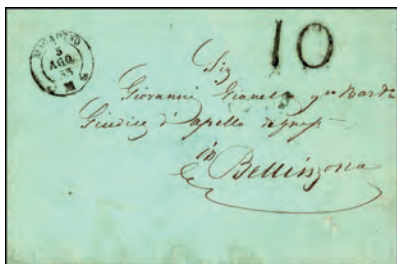 5
AGO
53
10
Sig
Giovanni Gianella
Giudice d'Apello
in
Bellinzona